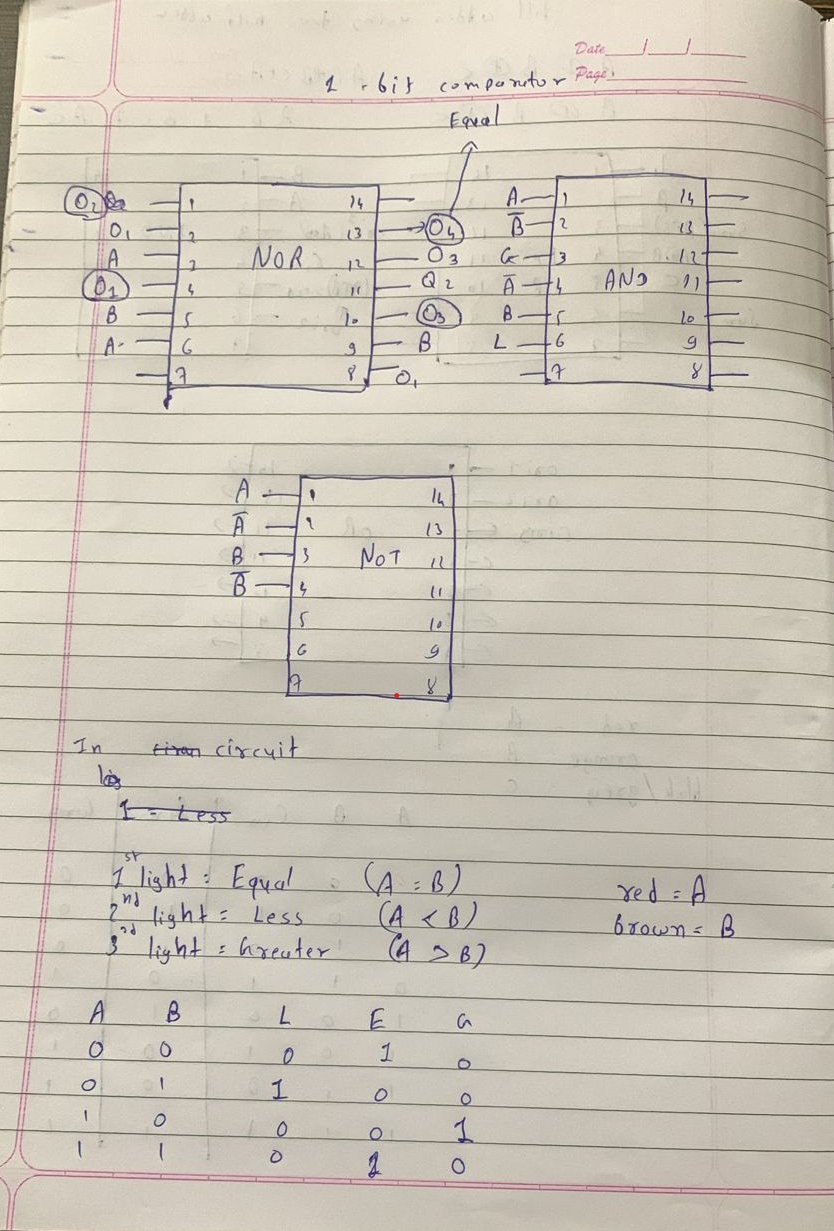 Date / /
Page.
1 - bit comparator
Equal
O2 1 14
O1 2 13 O4
A 3 NOR 12 O3
O1 4 11 Q2
B 5 10 O3
A 6 9 B
7 8 O1
A 1 14
B̅ 2 13
G 3 12
A̅ 4 AND 11
B 5 10
L 6 9
7 8
A 1 14
A̅ 2 13
B 3 NOT 12
B̅ 4 11
5 10
6 9
7 8
In circuit
1 - Less
1st light = Equal (A = B)
2nd light = Less (A < B)
3rd light = Greater (A > B)
red = A
brown = B
A B L E G
0 0 0 1 0
0 1 1 0 0
1 0 0 0 1
1 1 0 1 0